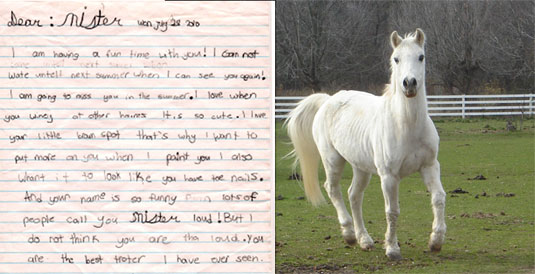 Dear: Mister Wen, July 28 2010
I am having a fun time with you! I can not
wate untell next summer when I can see you again!
I am going to miss you in the summer. I love when
you winey at other horses It is so cute. I love
your little brown spot that's why I want to
put more on you when I paint you I also
want it to look like you have toe nails.
And your name is so funny lots of
people call you Mister loud! But I
do not think you are tha loud. You
are the best troter I have ever seen.